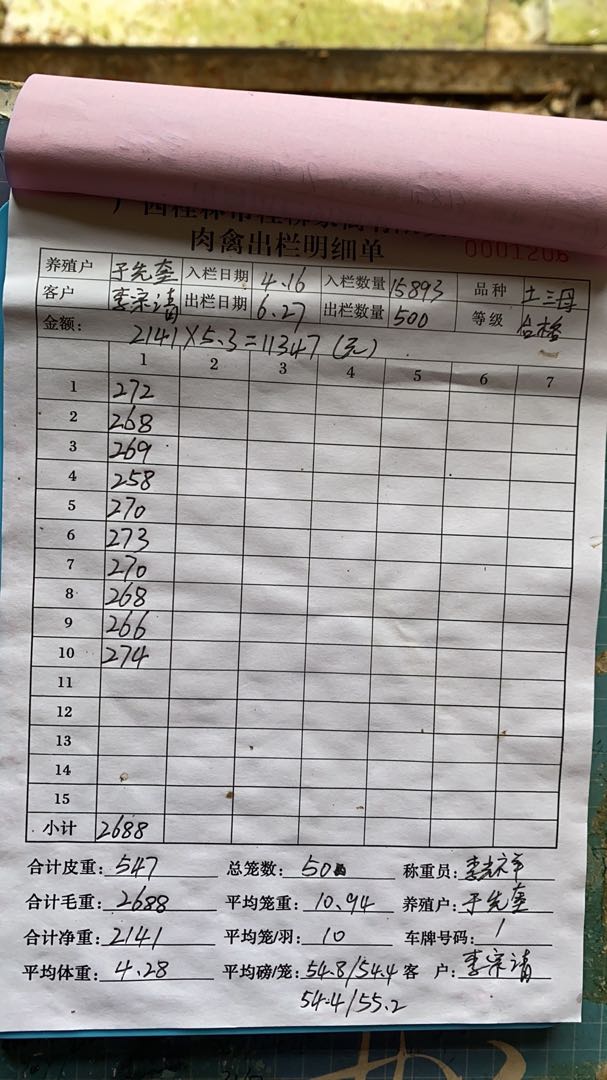 肉禽出栏明细单 0001206
养殖户 于先奎 入栏日期 4.16 入栏数量 15893 品种 土三母
客户 李宗清 出栏日期 6.27 出栏数量 500 等级 合格
金额: 2141×5.3=11347(元)
1 2 3 4 5 6 7
1 272
2 268
3 269
4 258
5 270
6 273
7 270
8 268
9 266
10 274
11
12
13
14
15
小计 2688
合计皮重: 547 总笼数: 50 称重员:
合计毛重: 2688 平均笼重: 10.94 养殖户: 于先奎
合计净重: 2141 平均笼/羽: 10 车牌号码: 1
平均体重: 4.28 平均磅/笼: 54.8/54.4 客 户: 李宗清
54.4/55.2